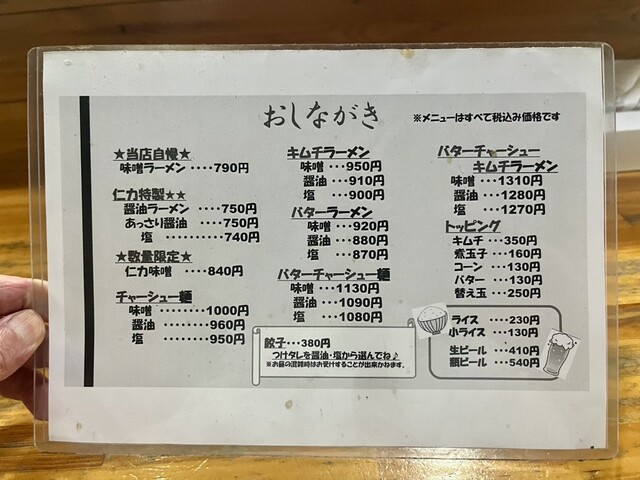 おしながき
※メニューはすべて税込み価格です
★当店自慢★
味噌ラーメン ････790円
仁力特製★★
醤油ラーメン ････750円
あっさり醤油 ････750円
塩 ････740円
★数量限定★
仁力味噌 ････840円
チャーシュー麺
味噌 ･････1000円
醤油 ･････960円
塩 ･････950円
キムチラーメン
味噌 ･･･950円
醤油 ･･･910円
塩 ･･･900円
バターラーメン
味噌 ･･･920円
醤油 ･･･880円
塩 ･･･870円
バターチャーシュー麺
味噌 ･･･1130円
醤油 ･･･1090円
塩 ･･･1080円
餃子･･･380円
つけタレを醤油・塩から選んでね♪
※お昼の混雑時はお受けすることが出来かねます。
バターチャーシュー
キムチラーメン
味噌 ･･･1310円
醤油 ･･･1280円
塩 ･･･1270円
トッピング
キムチ ･･･350円
煮玉子 ･･･160円
コーン ･･･130円
バター ･･･130円
替え玉 ･･･250円
ライス ････230円
小ライス ･･･130円
生ビール ･･･410円
瓶ビール ･･･540円